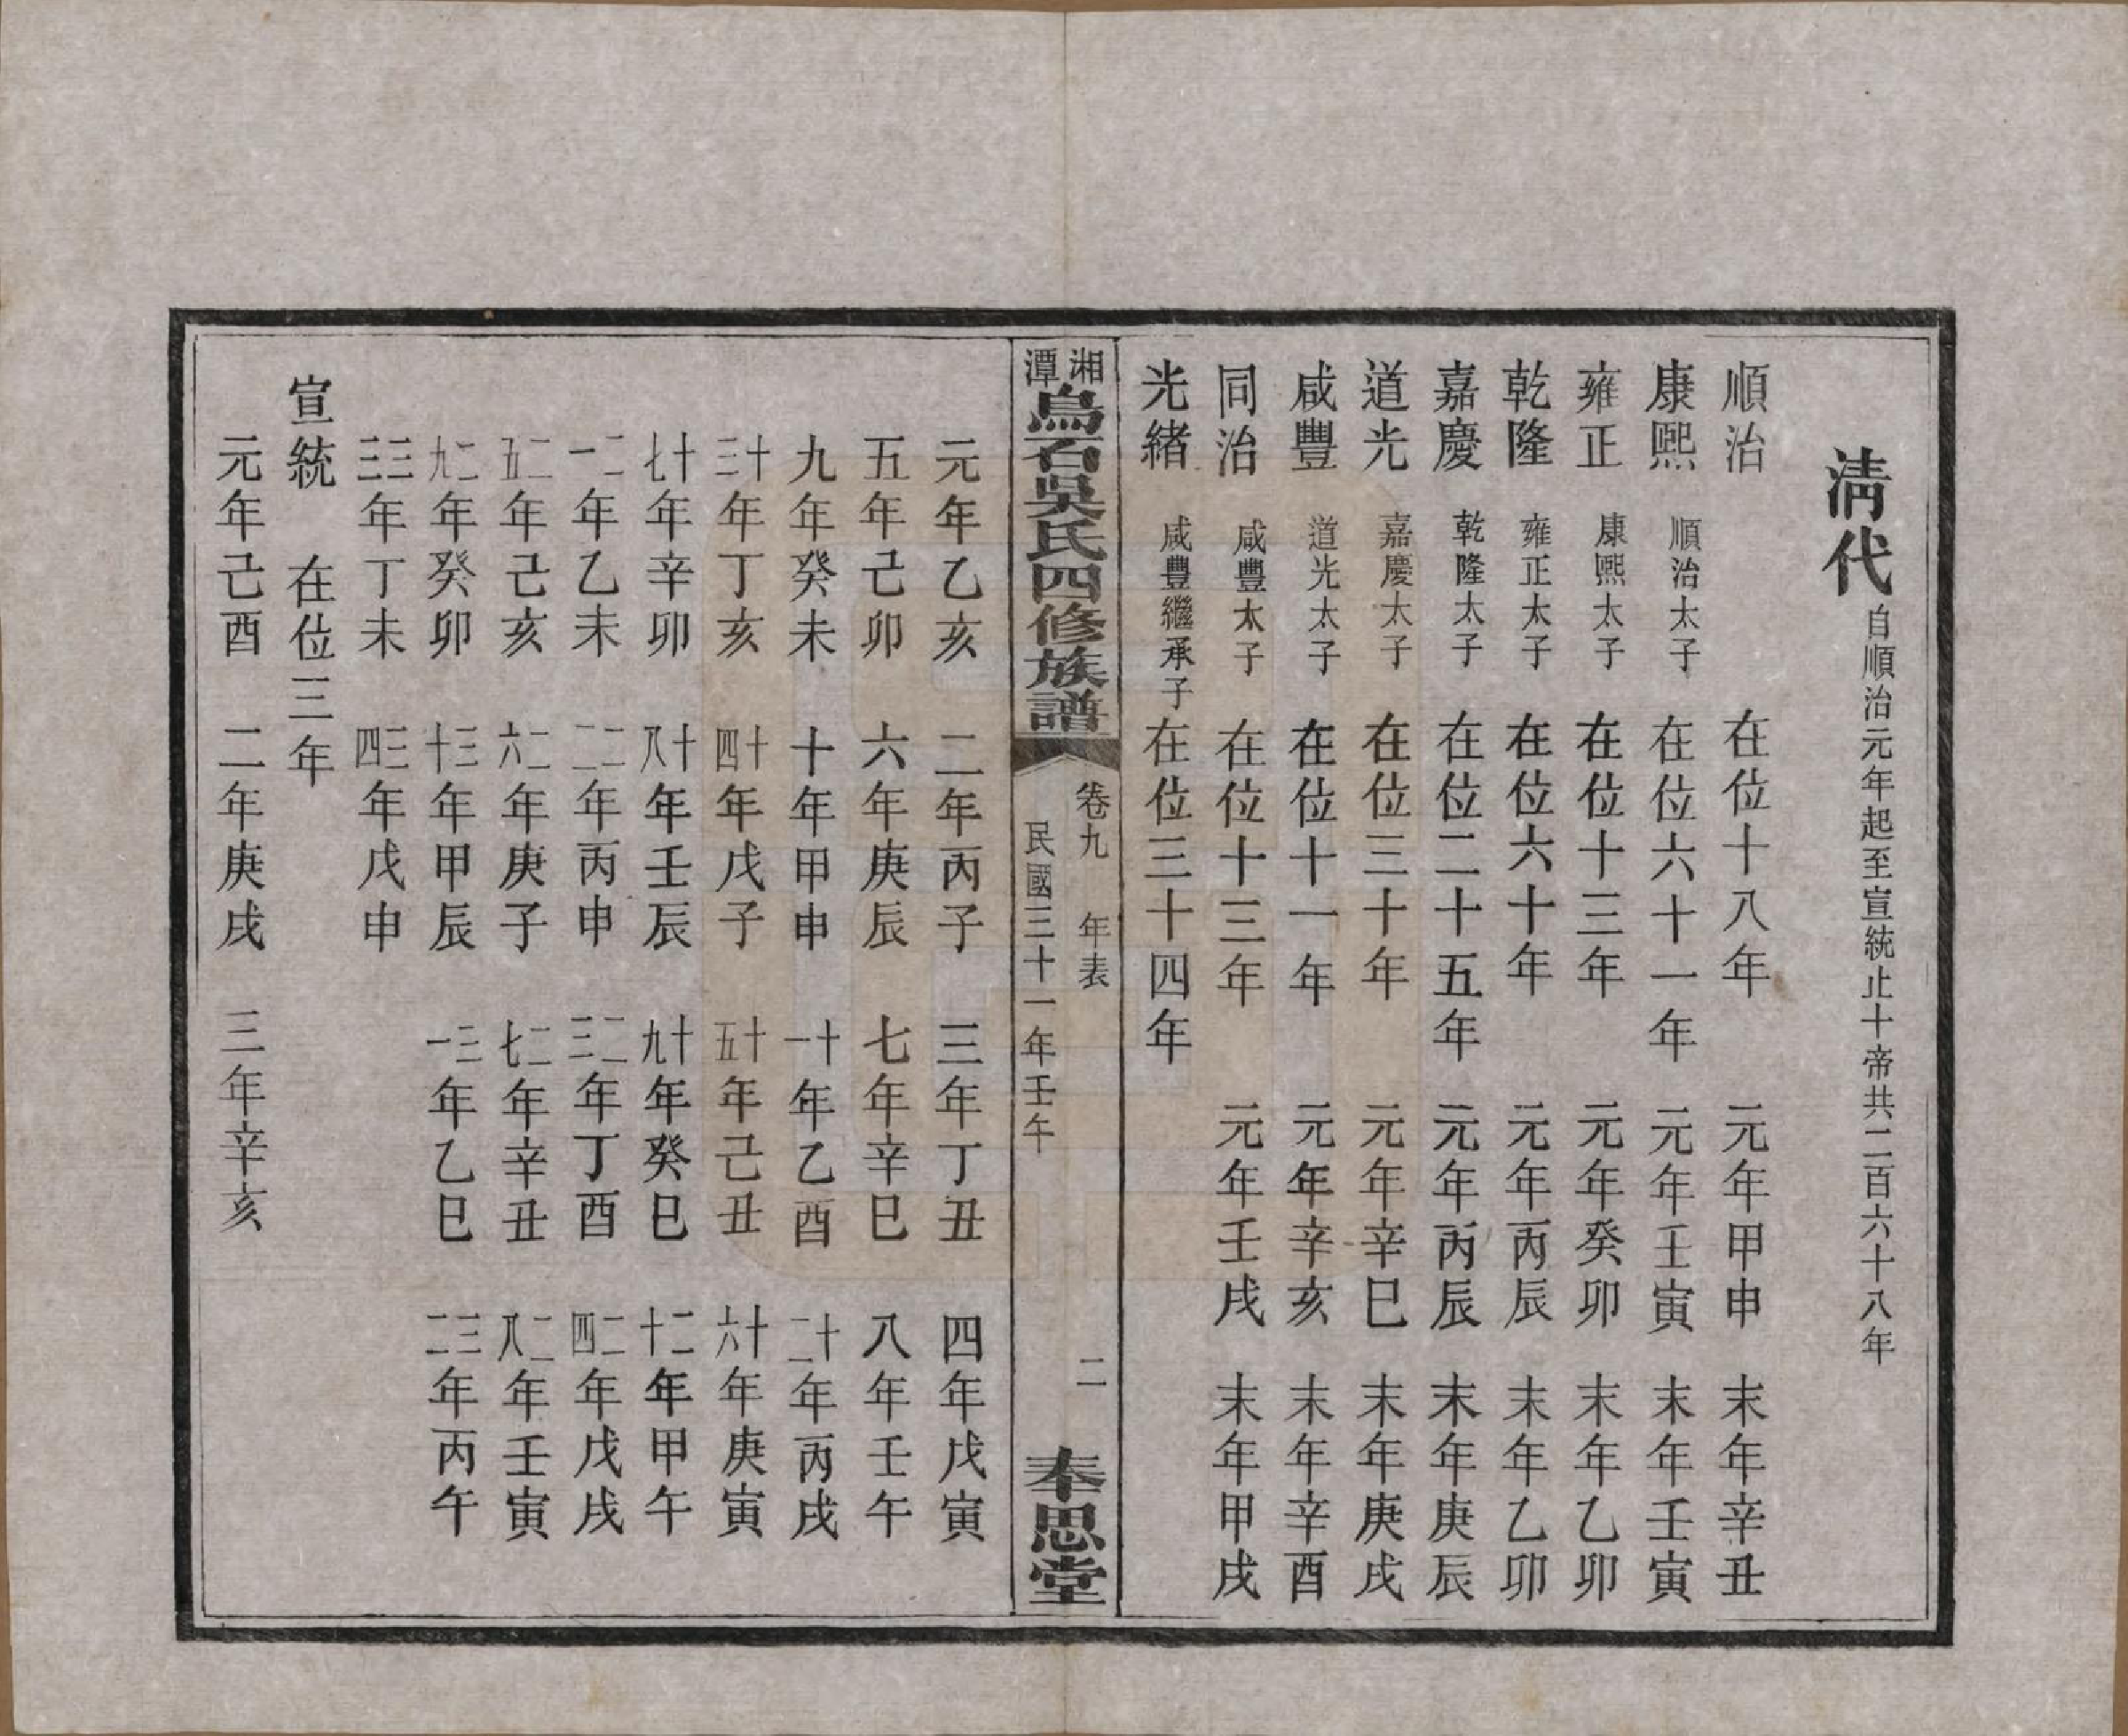 清代 自順治元年起至宣統止十帝共二百六十八年
順治 在位十八年 元年甲申 末年辛丑
康熙 順治太子 在位六十一年 元年壬寅 末年壬寅
雍正 康熙太子 在位十三年 元年癸卯 末年乙卯
乾隆 雍正太子 在位六十年 元年丙辰 末年乙卯
嘉慶 乾隆太子 在位二十五年 元年丙辰 末年庚辰
道光 嘉慶太子 在位三十年 元年辛巳 末年庚戌
咸豐 道光太子 在位十一年 元年辛亥 末年辛酉
同治 咸豐太子 在位十三年 元年壬戌 末年甲戌
光緒 咸豐繼承子 在位三十四年
湘潭烏石吳氏四修族譜 卷九 年表 民國三十一年壬午 二 奉思堂
元年乙亥 二年丙子 三年丁丑 四年戊寅
五年己卯 六年庚辰 七年辛巳 八年壬午
九年癸未 十年甲申 十一年乙酉 十二年丙戌
十三年丁亥 十四年戊子 十五年己丑 十六年庚寅
十七年辛卯 十八年壬辰 十九年癸巳 二十年甲午
二一年乙未 二二年丙申 二三年丁酉 二四年戊戌
二五年己亥 二六年庚子 二七年辛丑 二八年壬寅
二九年癸卯 三十年甲辰 三一年乙巳 三二年丙午
三三年丁未 三四年戊申
宣統 在位三年
元年己酉 二年庚戌 三年辛亥